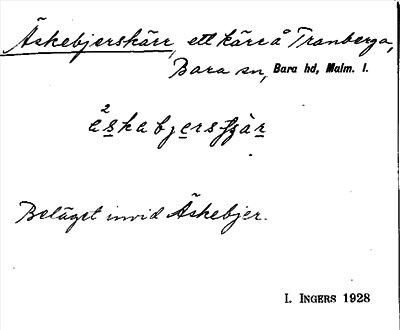 Äskebjerskärr, ett kärr å Tranberga,
Bara sn, Bara hd, Malm. l.
Beläget invid Äskebjer.
I. INGERS 1928